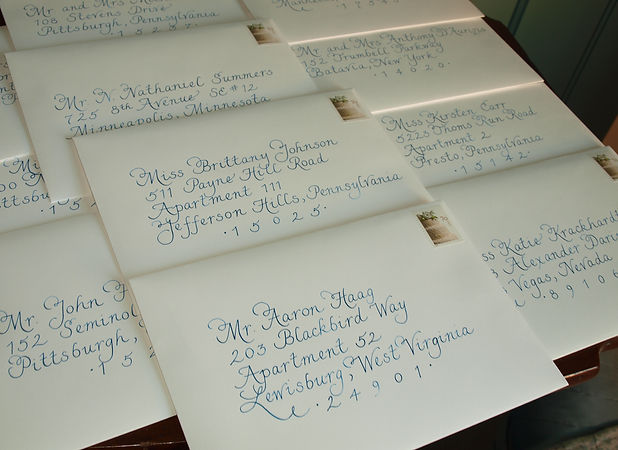 Mr and Mrs
108 Stevens Drive
Pittsburgh, Pennsylvania
Mr and Mrs Anthony
152 Trumbull Parkway
Batavia, New York
· 1 4 0 2 0 ·
Mr. N. Nathaniel Summers
725 8th Avenue, SE #12
Minneapolis, Minnesota
Miss Kirsten Carr
5223 Thoms Run Road
Apartment 2
Presto, Pennsylvania
· 1 5 1 4 2 ·
Miss Brittany Johnson
511 Payne Hill Road
Apartment 111
Jefferson Hills, Pennsylvania
· 1 5 0 2 5 ·
Katie Krackhardt
Alexander
Vegas, Nevada
8 9 1 0 6
Mr. John
152
Pittsburgh,
· 1 5
Mr. Aaron Haag
203 Blackbird Way
Apartment 52
Lewisburg, West Virginia
· 2 4 9 0 1 ·